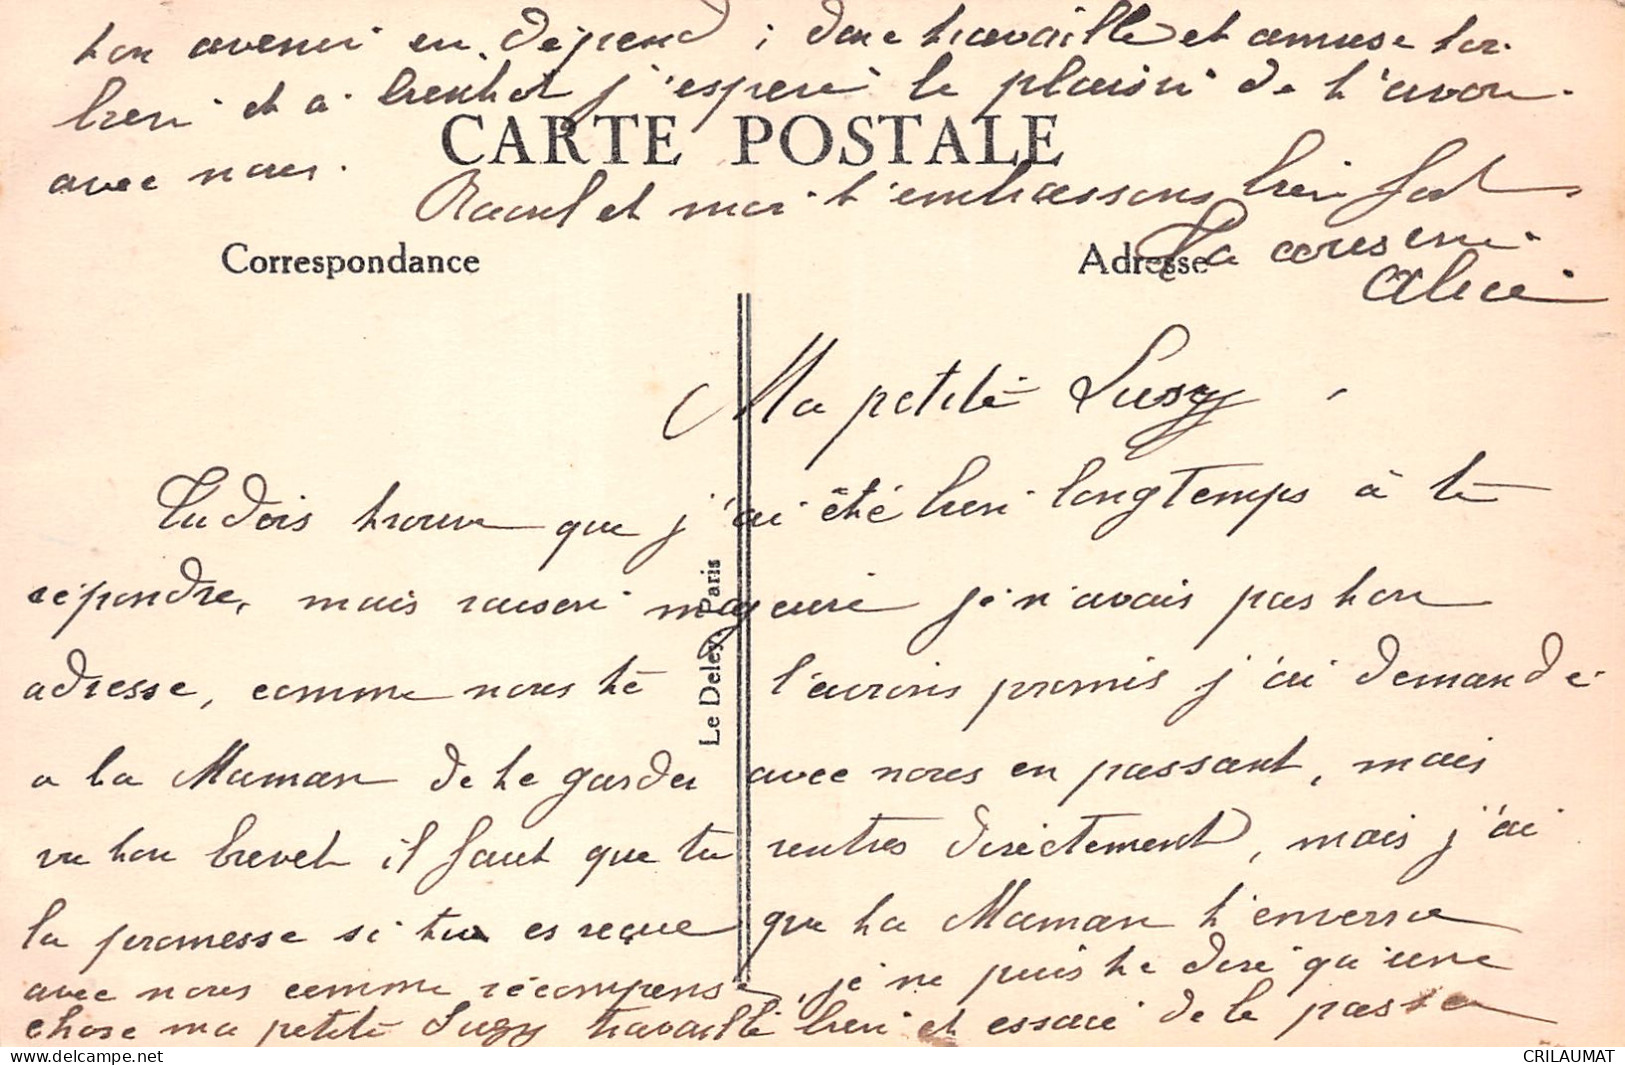 ton avenir en dépend ; donc travaille et amuse toi
bien et à bientot j'espère le plaisir de t'avoir
avec nous.
CARTE POSTALE
Raoul et moi t'embrassons bien fort
Ta cousine
Alice
Correspondance
Adresse
Ma petite Suzy,
Tu dois trouver que j'ai été bien longtemps à te
répondre, mais raison majeure je n'avais pas ton
adresse, comme nous te l'avions promis j'ai demandé
a la Maman de te garder avec nous en passant, mais
vu ton brevet il faut que tu rentres directement, mais j'ai
la promesse si tu es reçue que ta Maman t'enverra
avec nous comme récompense, je ne puis te dire qu'une
chose ma petite Suzy travaille bien et essaie de le passer
Le Deley, Paris
CRILAUMAT